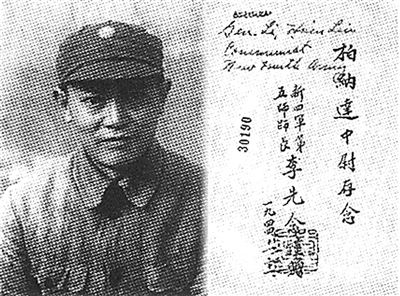 Gen. Li Hsien Lin
Communist
New Fourth Army
柏納達中尉存念
新四軍第
五師師長
李先念
30190